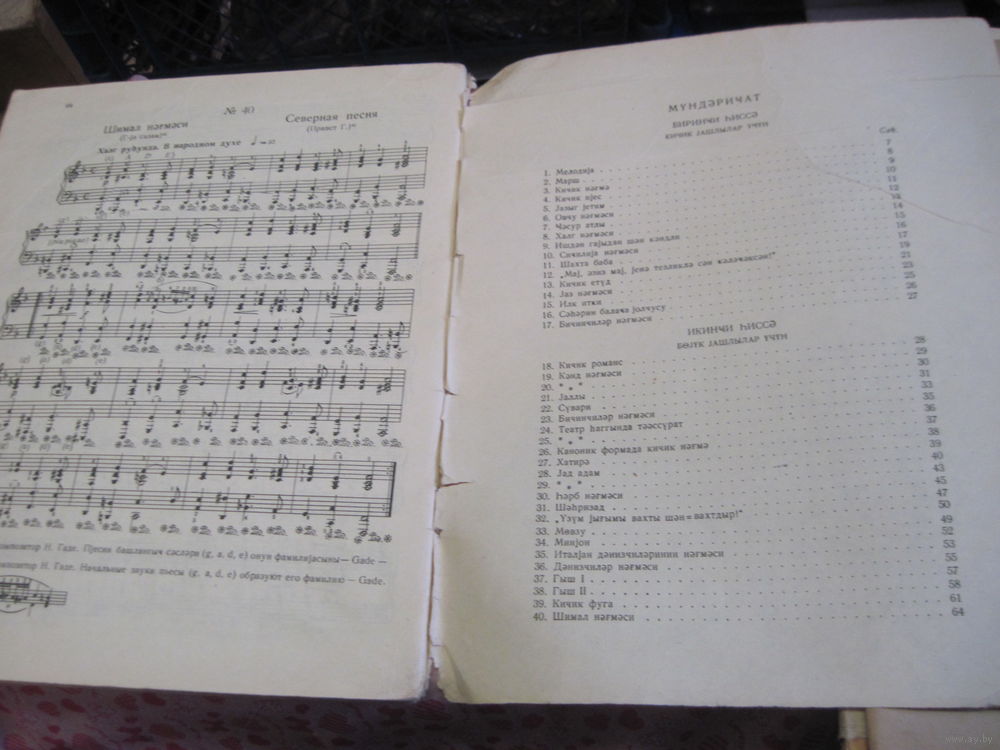 № 40
Шимал нәғмәси
Северная песня
(Привет Г.)
Халг руһунда. В народном духе
композитор Н. Гаде. Пјесин башланғыч сәсләри (g, a, d, e) онун фамилијасыны — Gade —
композитор Н. Гаде. Начальные звуки пьесы (g, a, d, e) образуют его фамилию — Gade.
МҮНДӘРИЧАТ
БИРИНЧИ ҺИССӘ
КИЧИК ЈАШЛЫЛАР ҮЧҮН
Сәһ.
1. Мелодија 7
2. Марш 8
3. Кичик нәғмә 9
4. Кичик пјес 10
5. Јазыг јетим 11
6. Овчу нәғмәси 12
7. Чәсур атлы
8. Халг нәғмәси 14
9. Ишдән гајыдан шән кәндли 15
10. Сичилија нәғмәси 16
11. Шахта баба 17
12. „Мај, әзиз мај, јенә тезликлә сән кәләчәксән!" 19
13. Кичик етүд 21
14. Јаз нәғмәси 23
15. Илк итки 25
16. Сәһәрин балача јолчусу 26
17. Бичинчиләр нәғмәси 27
ИКИНЧИ ҺИССӘ
БӨЈҮК ЈАШЛЫЛАР ҮЧҮН
18. Кичик романс 28
19. Кәнд нәғмәси 29
20. * * * 30
21. Јаллы 31
22. Сүвари 33
23. Бичинчиләр нәғмәси 35
24. Театр һаггында тәәссүрат 36
25. * * * 37
26. Каноник формада кичик нәғмә 38
27. Хатирә 39
28. Јад адам 40
29. * * * 43
30. Һәрб нәғмәси 45
31. Шәһризад 47
32. „Үзүм јығымы вахты шән=вахтдыр!" 50
33. Мөвзу 49
34. Минјон 52
35. Италјан дәнизчиләринин нәғмәси 53
36. Дәнизчиләр нәғмәси 55
37. Гыш I 57
38. Гыш II 58
39. Кичик фуга 61
40. Шимал нәғмәси 64
www.ay.by